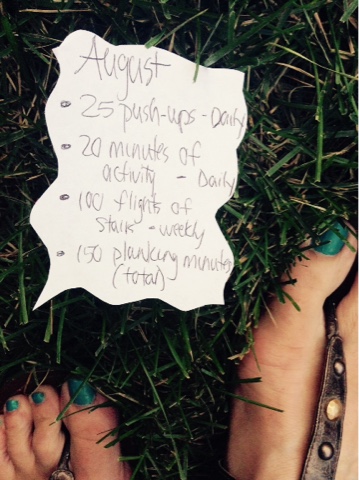 August
25 push-ups - Daily
20 minutes of
activity - Daily
100 flights of
stairs - weekly
150 planking minutes
(total)